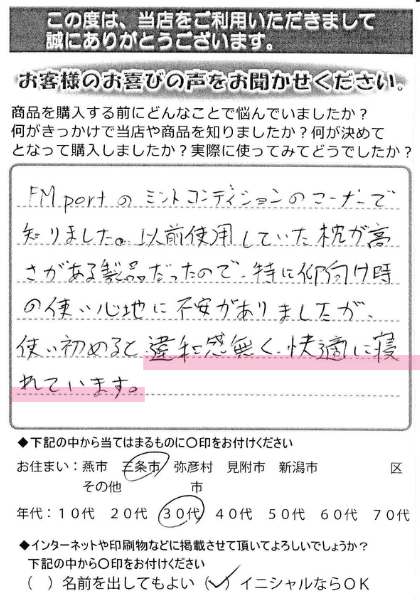 この度は、当店をご利用いただきまして
誠にありがとうございます。
お客様のお喜びの声をお聞かせください。
商品を購入する前にどんなことで悩んでいましたか？
何がきっかけで当店や商品を知りましたか？何が決めて
となって購入しましたか？実際に使ってみてどうでしたか？
FM portのミントコンディションのコーナーで
知りました。以前使用していた枕が高
さがある製品だったので、特に仰向け時
の使い心地に不安がありましたが、
使い初めると違和感無く、快適に寝
れています。
◆下記の中から当てはまるものに〇印をお付けください
お住まい：燕市　三条市　弥彦村　見附市　新潟市　　　区
その他　　　　市
年代：１０代　２０代　３０代　４０代　５０代　６０代　７０代
◆インターネットや印刷物などに掲載させて頂いてよろしいでしょうか？
下記の中から〇印をお付けください
（　）名前を出してもよい（✓）イニシャルならＯＫ